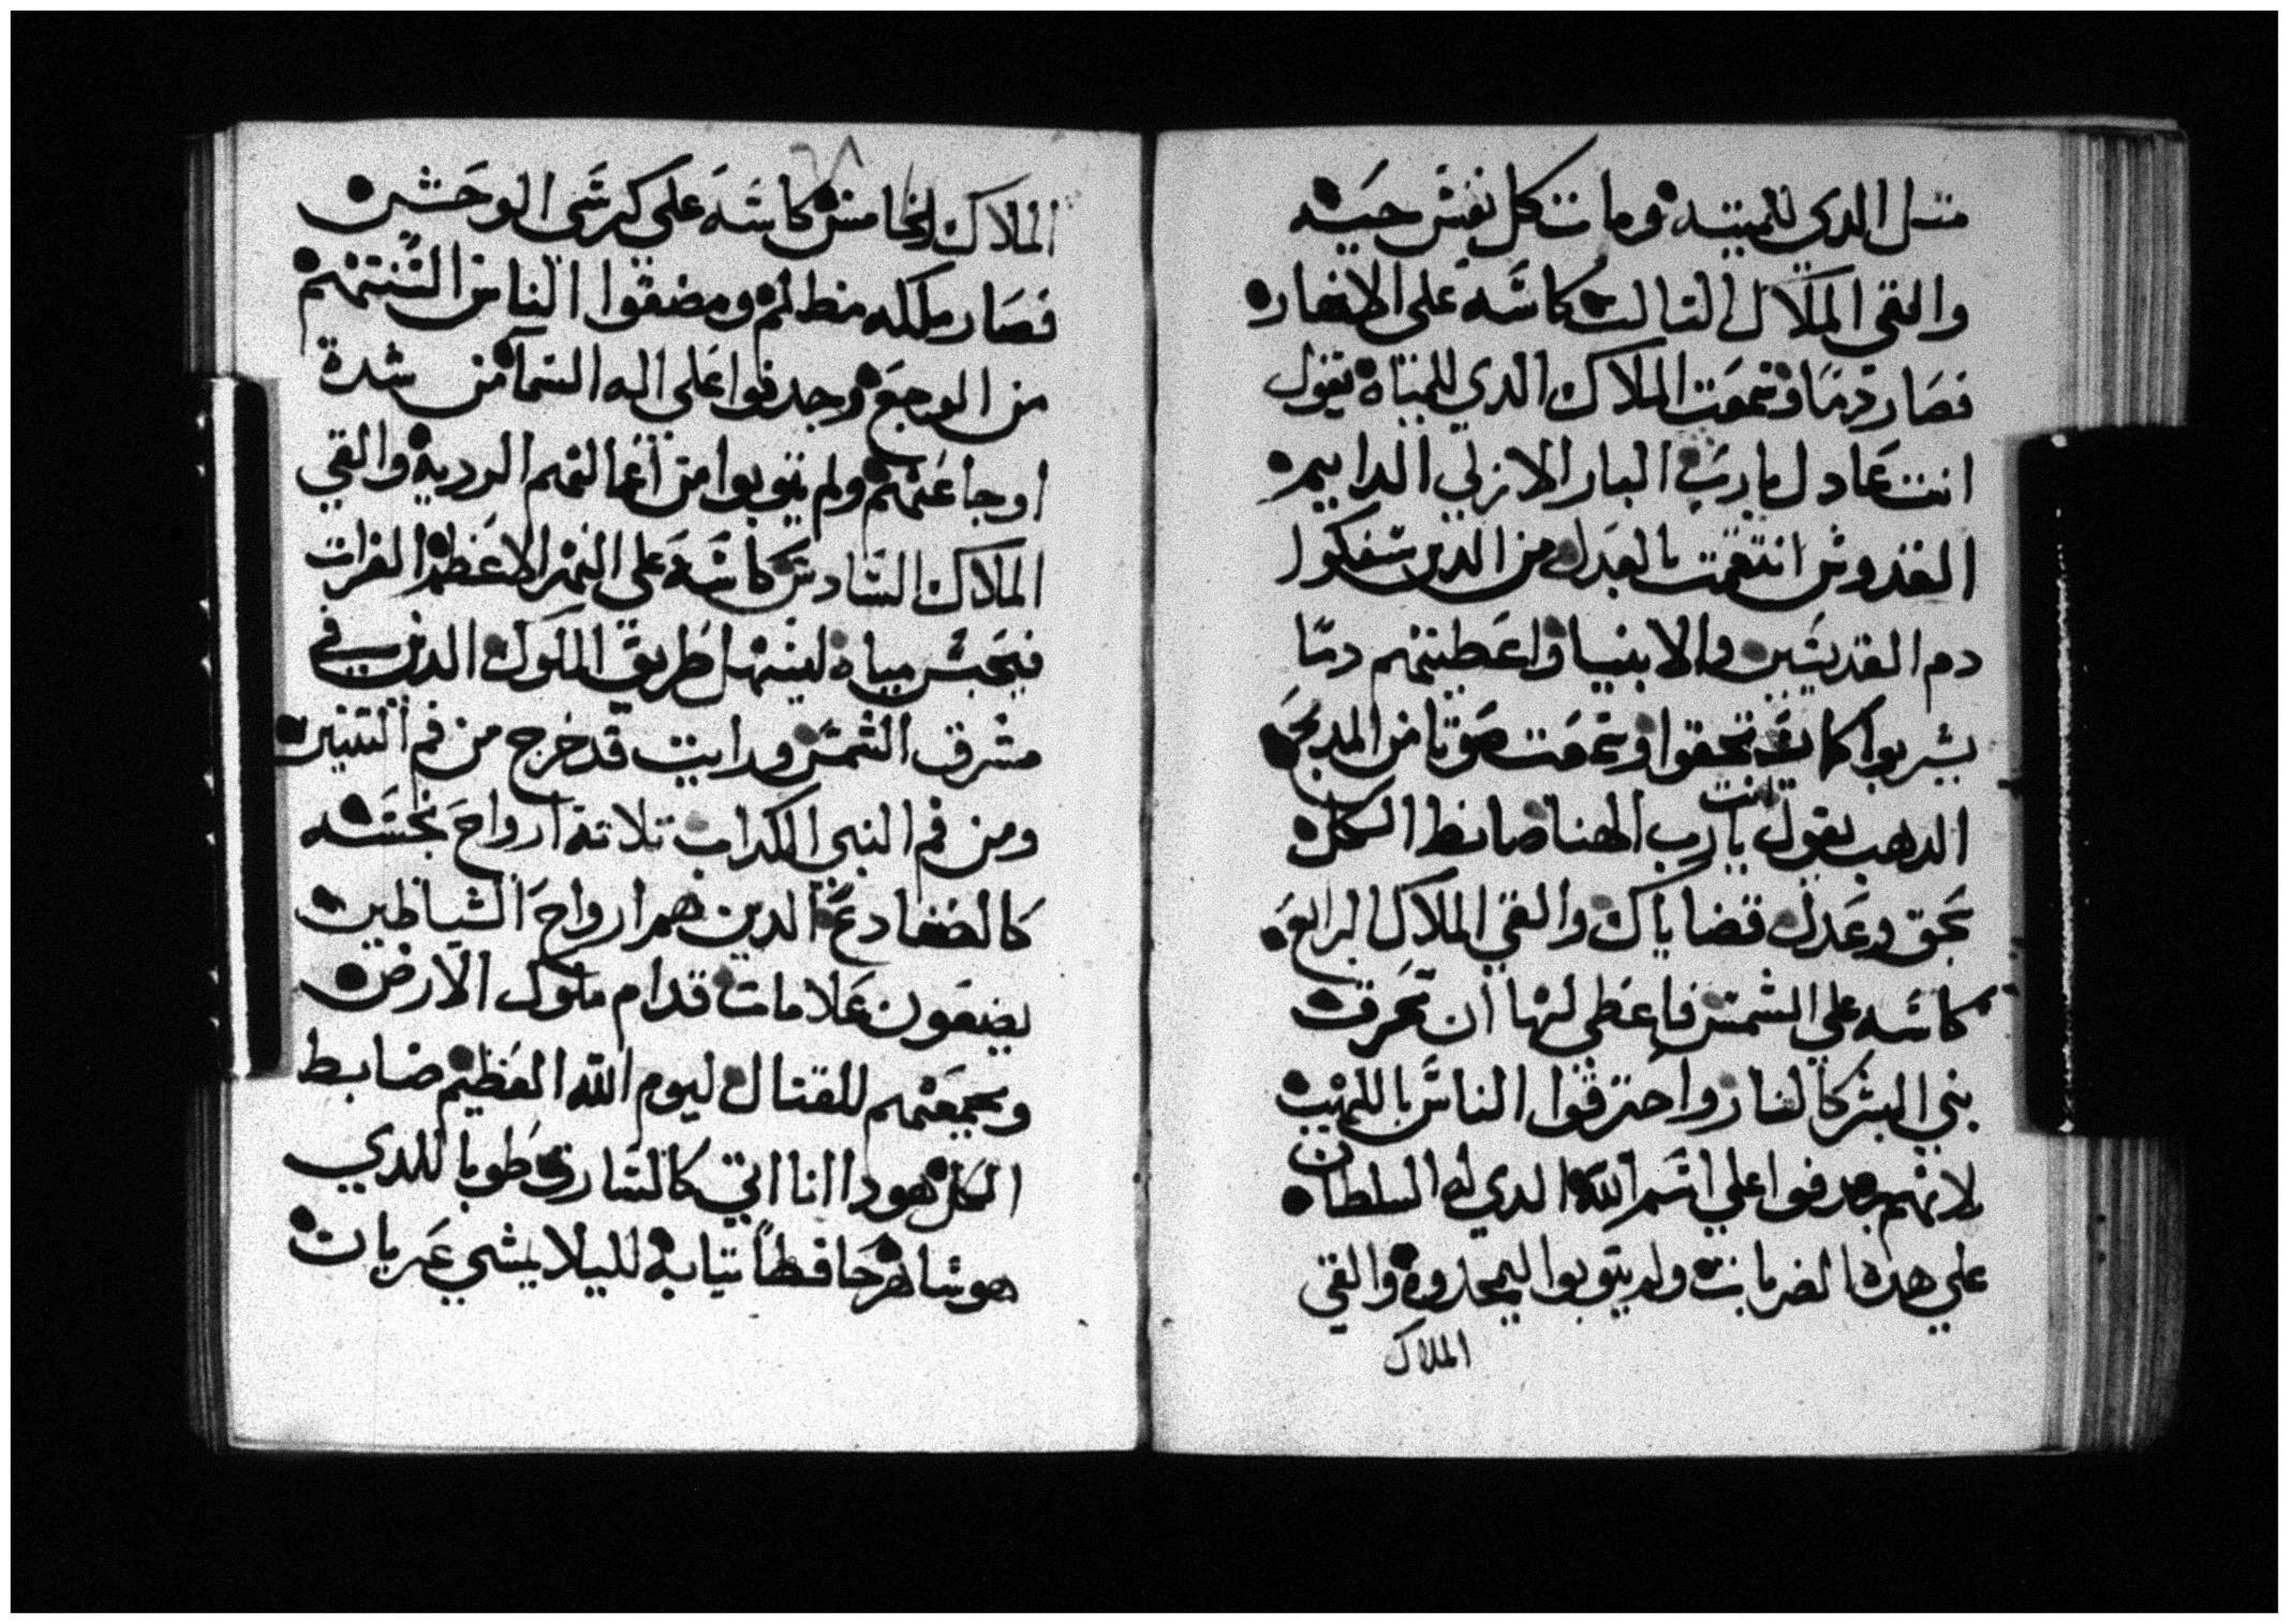 متل الدي للميته وماتت كل نفس حيه
والقي الملاك التالت كاسه علي الانهار
فصار دما وسمعت الملاك الدي للمياه يقول
انت عادل يا رب البار الازلي الدايم
القدوس انتقمت بالعدل من الدين سفكوا
دم القديسين والانبيا واعطيتهم دما
يشربوا كما تحققوا وسمعت صوتا من المدبح
الدهب يقول انت يا رب الهنا ضابط الكل
بحق وعدل قضاياك والقي الملاك الرابع
كاسه علي الشمس فاعطي لها ان تحرق
بني البشر كالنار واحترقوا الناس باللهيب
لانهم جدفوا علي اسم الله الدي له السلطان
علي هده الضربات ولم يتوبوا ليمجدوه والقي
الملاك
٦٨
الملاك الخامس كاسه علي كرسي الوحش
فصار ملكه مظلم ومضقوا الناس السنتهم
من الوجع وجدفوا علي اله السما من شدة
اوجاعهم ولم يتوبوا من اعمالهم الرديه والقي
الملاك السادس كاسه علي النهر الاعظم الفرات
فيحبس مياه ليسهل طريق الملوك الدين في
مشرق الشمس ورايت قد خرج من فم التنين
ومن فم النبي الكداب تلاتة ارواح نجسه
كالضفادع الدين هم ارواح الشياطين
يصنعون علامات قدام ملوك الارض
ويجمعهم للقتال ليوم الله العظيم ضابط
الكل هودا انا اتي كالسارق طوبا للدي
هو ساهر حافظا تيابه لليلا يمشي عريان